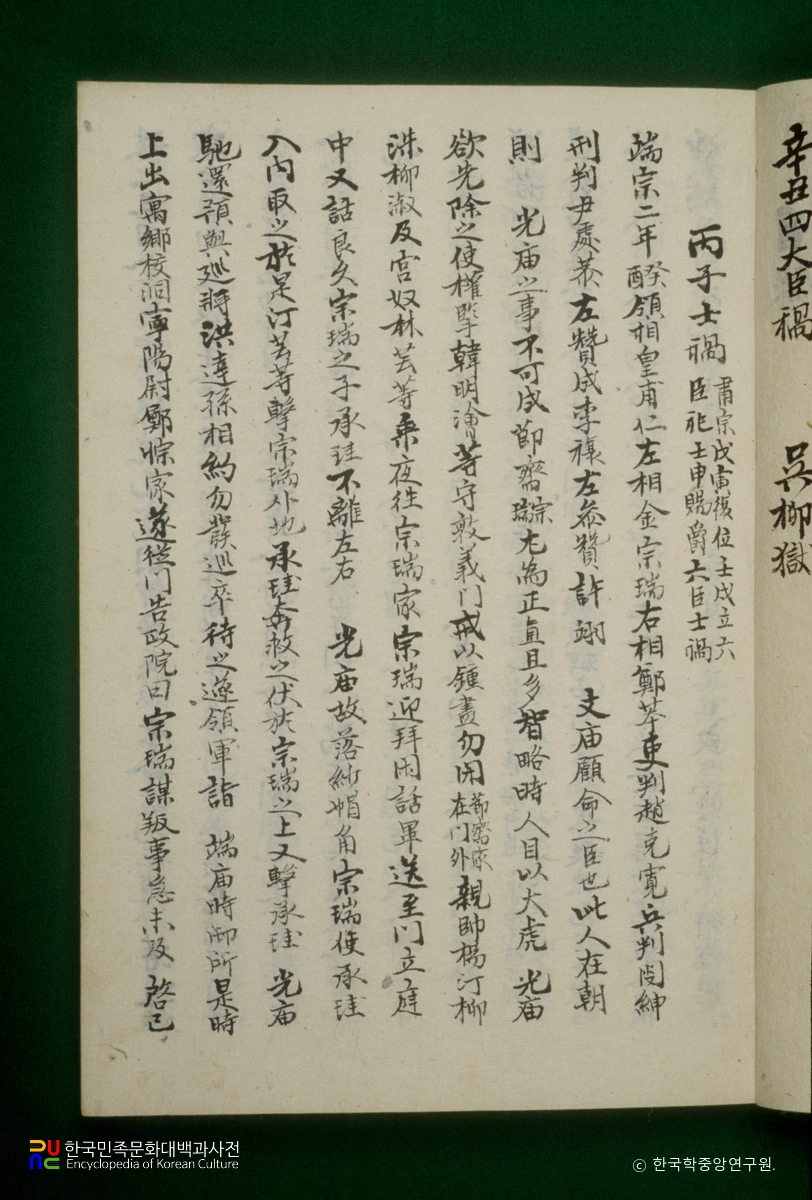 辛丑四大臣禍 吳柳獄
丙子士禍 肅宗戊寅復位壬戌立六
臣祀士申賜爵六臣士禍
端宗二年 領相皇甫仁左相金宗瑞右相鄭苯吏判趙克寬兵判閔紳
刑判尹處恭左贊成李穰左參贊許詡 文庙顧命之臣也此人在朝
則 光庙之事不可成節齋宗瑞尤為正直且多智略時人目以大虎 光庙
欲先除之使權擥韓明澮等守敦義门戒以鍾盡勿闭節齋家在门外親帥楊汀柳
洙柳淑及宮奴林芸等乘夜徃宗瑞家宗瑞迎拜闲話畢送至门立庭
中又話良久宗瑞之子承珪不離左右 光庙故落紗帽角宗瑞使承珪
入內取之於是汀芸等擊宗瑞仆地承珪奔救之伏於宗瑞之上又擊承珪 光庙
馳還預與廵將洪達孫相約勿發廵卒待之遂領軍詣 端庙時御所是時
上出寓鄉校洞寧陽尉鄭悰家遂從门告政院曰宗瑞謀叛事急未及 啓已
한국민족문화대백과사전
Encyclopedia of Korean Culture
ⓒ 한국학중앙연구원.